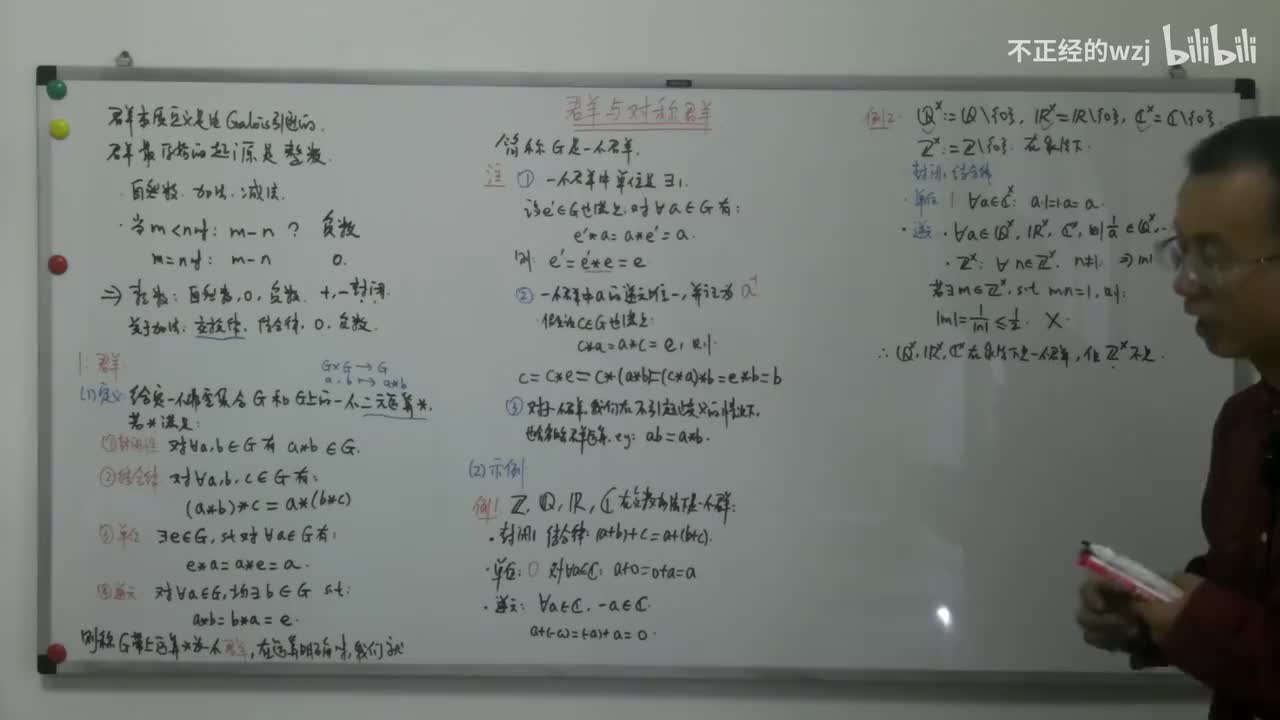 不正经的wzj bilibili
群与对称群
群本质定义是由Galois引进的.
群最直接的起源是整数.
· 自然数. 加法. 减法.
· 当m<n时: m-n ? 负数
m=n时: m-n 0.
⇒ 整数: 自然数, 0, 负数. +, - 封闭.
关于加法: 交换律, 结合律, 0, 负数.
1. 群
G×G → G
a, b ↦ a*b
(1) 定义 给定一个非空集合G和G上的一个二元运算*,
若*满足:
①封闭性 对∀a,b∈G有 a*b∈G.
②结合律 对∀a,b,c∈G有:
(a*b)*c=a*(b*c)
③单位 ∃e∈G, s.t 对∀a∈G有:
e*a=a*e=a.
④逆元 对∀a∈G, 均∃b∈G s.t:
a*b=b*a=e.
则称G带上运算*为一个群, 在运算明确时, 我们就
简称G是一个群.
注 ① 一个群中单位是∃1.
设e'∈G也满足对∀a∈G有:
e'*a=a*e'=a.
则 e'=e'*e=e
② 一个群中a的逆元唯一, 并记为a⁻¹
假设c∈G也满足:
c*a=a*c=e, 则.
c=c*e=c*(a*b)=(c*a)*b=e*b=b
③ 对于一个群, 我们在不引起歧义的情况下,
也省略群运算. eg: ab=a*b.
(2) 示例
例1 Z, Q, R, C在加法下是一个群:
· 封闭, 结合律: (a+b)+c=a+(b+c).
· 单位: 0 对∀a∈C: a+0=0+a=a
· 逆元: ∀a∈C. -a∈C.
a+(-a)=(-a)+a=0.
例2 Q^×:=Q\{0}, R^×=R\{0}, C^×=C\{0}.
Z^×:=Z\{0}. 在乘法下.
封闭, 结合律
· 单位 1 ∀a∈C^×: a·1=1·a=a.
· 逆. ∀a∈Q^×, R^×, C^×, 则1/a∈Q^×,
· Z^×: ∀n∈Z^×. n≠1, ⇒|n|
若∃m∈Z^×, s.t mn=1, 则:
|m|=1/|n|≤1/2. ×.
∴ Q^×, R^×, C^×在乘法下是一个群, 但Z^×不是.